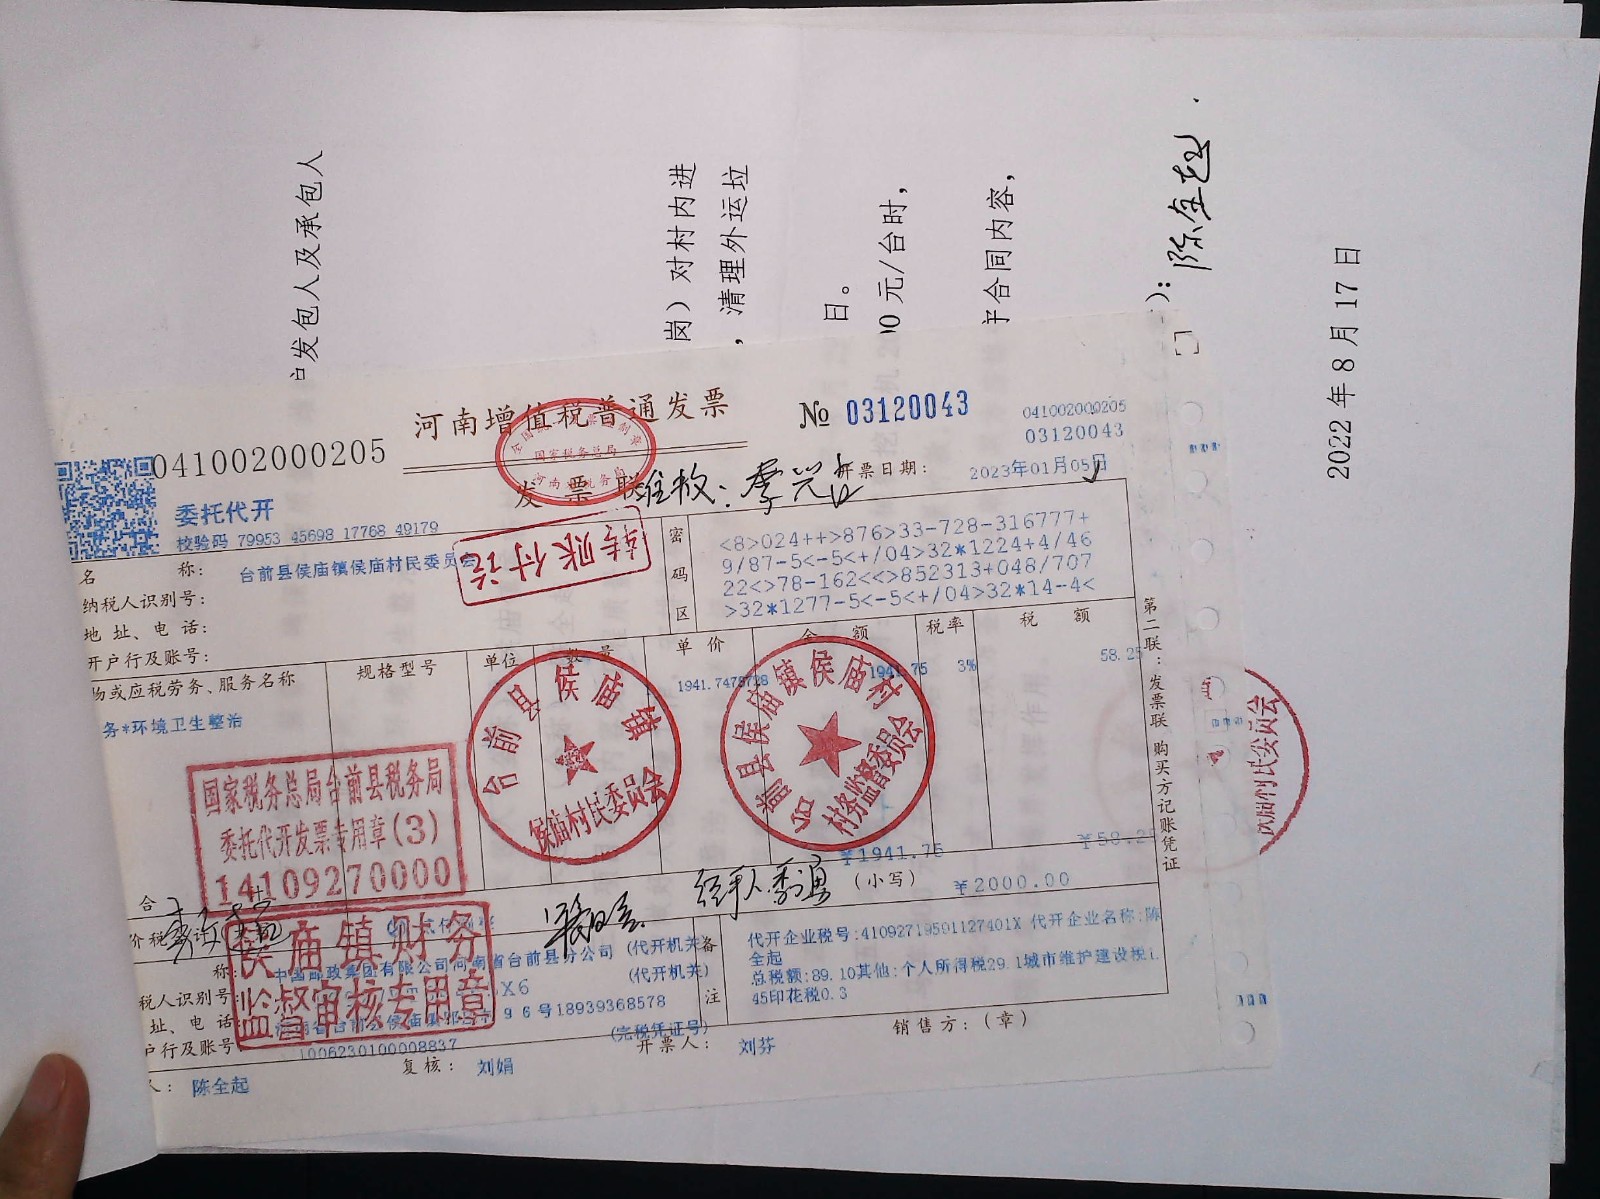 发包人及承包人
岗）对村内进
，清理外运垃
日。
00元/台时，
合同内容，
）：陈全起
2022年8月17日
河南增值税普通发票
041002000205
№ 03120043
041002000205
03120043
发票联
开票日期：
2023年01月05日
委托代开
校验码 79953 45698 17768 49179
转账付讫
名称：
台前县侯庙镇侯庙村民委员会
纳税人识别号：
地址、电话：
开户行及账号：
密码区
<8>024++>876>33-728-316777+
9/87-5<-5<+/04>32*1224+4/46
22<>78-162<<>852313+048/707
>32*1277-5<-5<+/04>32*14-4<
物或应税劳务、服务名称
规格型号
单位
数量
单价
金额
税率
税额
务*环境卫生整治
1941.75
3%
58.25
第二联：发票联 购买方记账凭证
国家税务总局台前县税务局
委托代开发票专用章(3)
14109270000
台前县侯庙镇
侯庙村民委员会
台前县侯庙镇侯庙村
村务监督委员会
村民委员会
合
¥1941.75
（小写）
¥2000.00
侯庙镇财务
监督审核专用章
称：
中国邮政集团有限公司河南省台前县分公司
(代开机关)
税人识别号：
(代开机关)
址、电话：
96号18939368578
户行及账号：
1006230100008837
(完税凭证号)
备注
代开企业税号:41092719591127401X 代开企业名称:陈
全起
总税额:89.10其他:个人所得税29.1城市维护建设税1.
45印花税0.3
人：
陈全起
复核：
刘娟
开票人：
刘芬
销售方：（章）